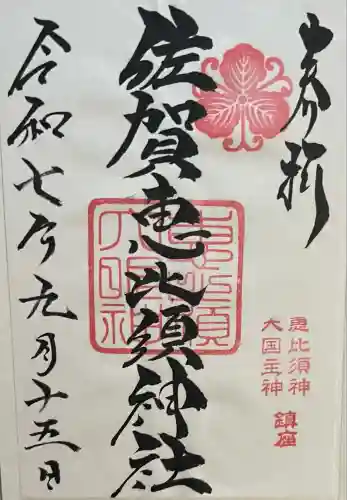 奉拝
佐賀恵比須神社
恵比須神
大国主神
鎮座
令和七年九月十五日